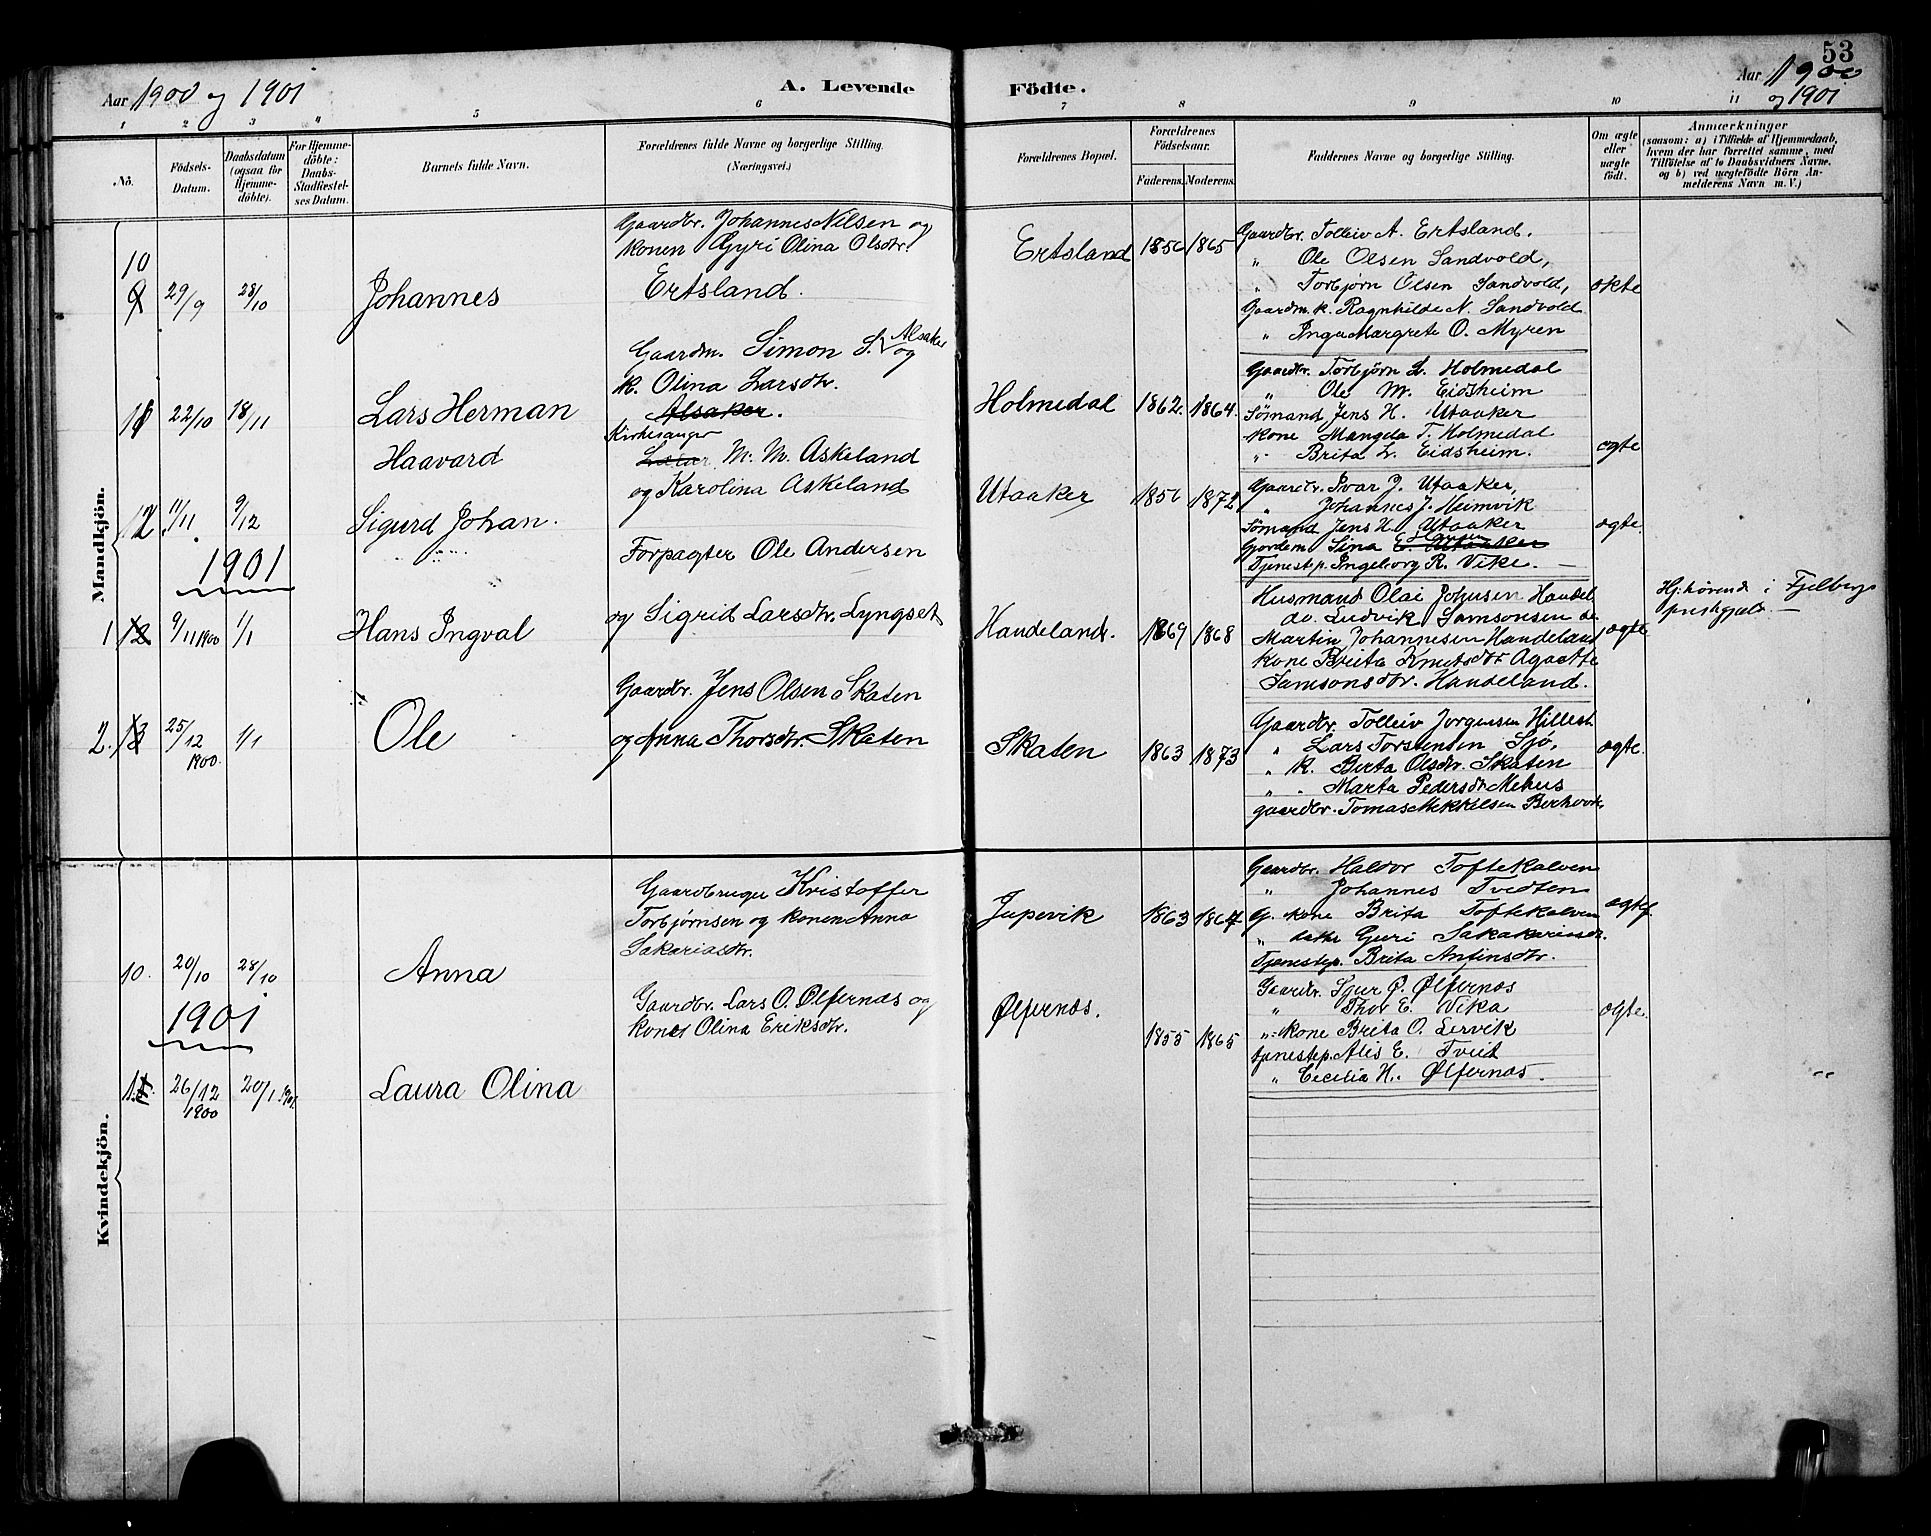 53
Aar 1900 og 1901
A. Levende Födte.
Aar 1900 og 1901
1 2 3 4 5 6 7 8 9 10 11
No.
Födsels-Datum.
Daabsdatum (ogsaa för Hjemme-döbte).
For Hjemme-döbte: Daabs-Stadfæstel-ses Datum.
Barnets fulde Navn.
Forældrenes fulde Navne og borgerlige Stilling. (Næringsvei.)
Forældrenes Bopæl.
Forældrenes Födselsaar.
Faderens. Moderens.
Faddernes Navne og borgerlige Stilling.
Om ægte eller uægte født.
Anmærkninger
(saasom: a) i Tilfælde af Hjemmedaab, hvem der har forrettet samme, med Tilföielse af to Daabsvidners Navne, og b) ved uægtefödte Börn An-melderens Navn m. V.)
Mandkjön.
10 29/9 28/10 Johannes
Gaardbr. Johannes Nilsen og
konen Gyri Olina Olsdtr.
Ertsland.
Ertsland 1856 1865
Gaardbr. Tolleiv A. Ertsland.
" Ole Olsen Sandvold,
" Torbjørn Olsen Sandvold,
Gaardm. k. Ragnhilde N. Sandvold
" Inga Margrete O. Myren
ekte
11 22/10 18/11 Lars Herman
Haavard
Gaardm. Simon S. Alsaker og
k. Olina Larsdtr.
Alsaker.
Holmedal 1862. 1864.
Gaardbr. Torbjørn L. Holmedal
" Ole M. Eidsheim
Sømand Jens H. Utaaker
kone Mangela T. Holmedal
" Brita L. Eidsheim.
egte
12 11/11 9/12 Sigurd Johan.
Kirkesanger
M. M. Askeland
og Karolina Askeland
Utaaker 1856 1872
Gaardbr. Ivar J. Utaaker,
" Johannes J. Heimvik
Sømand Jens H. Utaaker
Gjordem. Sina Hansen E. Utaaker
Tjenestp. Ingeborg R. Vike.
egte.
1901
1 12 9/11 1900 1/1 Hans Ingval
Forpagter Ole Andersen
og Sigrid Larsdtr. Lyngset
Handeland. 1869 1868
Husmand Olai Johnsen Handel
do. Ludvik Samsonsen do
Martin Johannesen Handeland
Kone Breita Knutsdtr Agaette
Samsonsdtr. Handeland.
egte
Hjhørende i Fjelbergs
prestgjeld.
2. 13 25/12 1900. 1/1 Ole
Gaardbr. Jens Olsen Skaten
og Anna Thorsdtr. Skaten
Skaten 1863 1873
Gaardbr. Tolleiv Jorgensen Hillest
" Lars Torstensen Sjø,
" k. Berta Olsdtr. Skaten
" " Marta Pedersdtr Mehus
gaardbr. Tomas Mikkelsen
egte.
Kvindekjön.
10. 20/10 28/10 Anna
Gaardbruger Kristoffer
Torbjørnsen og konen Anna
Sakariasdtr.
Jupevik 1863 1867
Gaardbr. Haldor Toftekalven
" Johannes Tvedten
G. kone Brita Toftekalven
" datter Guri Sakakariasdtr.
Tjenestep. Brita Anfinsdtr.
egte
1901
1. 26/12 1900 20/1 1901 Laura Olina
Gaardbr. Lars O. Ølfernæs og
kone Olina Eriksdtr.
Ølfernæs. 1855 1865
Gaardbr. Sjur Ø. Ølfernæs
" Thor E. Vika
" kone Brita O. Lervik
tjenestep. Alis E. Tveit
" Cecilia H. Ølfernæs.
egte.